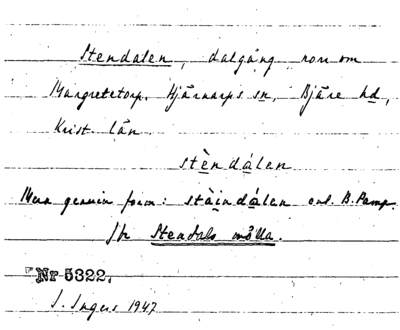 Stendalen, dalgång norr om
Margretetorp, Hjärnarps sn, Bjäre hd,
Krist. län.
stèndálen
Mera genuin form: stàindálen enl. B. Pamp.
Jfr Stendals mölla.
Nr 5322.
I. Ingers 1947